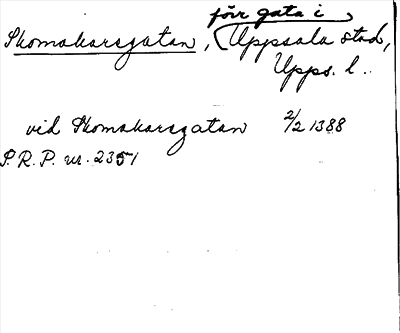 förr gata i
Skomakarsgatan, Uppsala stad,
Upps. l.
vid Skomakarsgatan 2/2 1388
S.R.P. nr. 2351